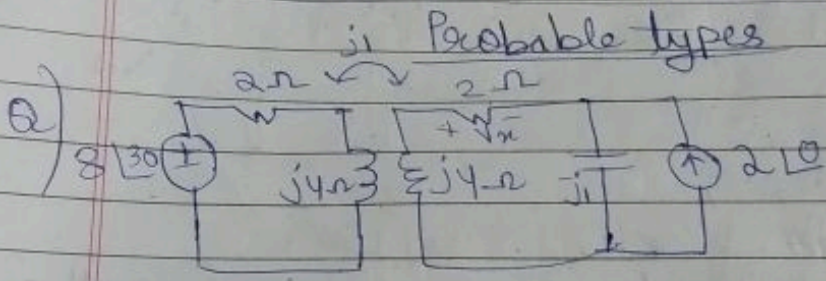 j1 Probable types
2Ω 2Ω
Q)
+ Vx -
8∠30 ± j4Ω j4Ω -j1 2∠0